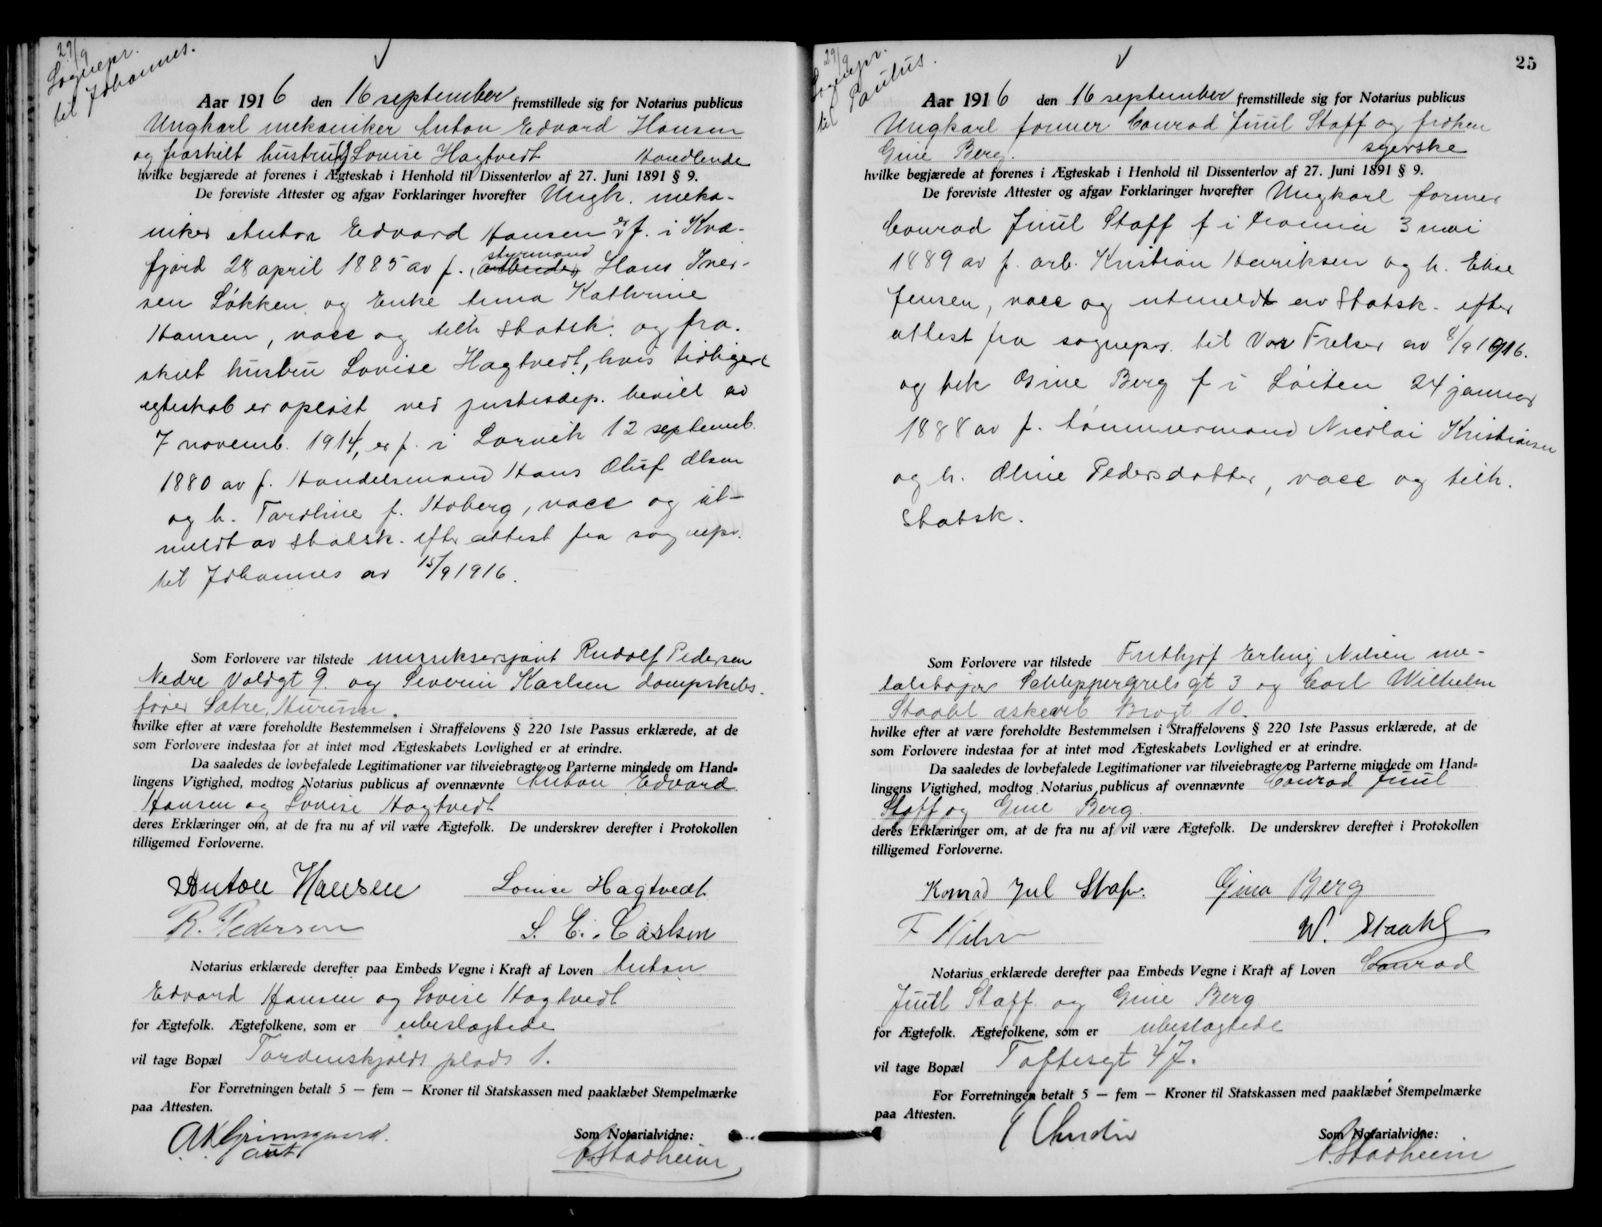 29/9
Sognepr.
til Johannes.
Aar 1916 den 16 september fremstillede sig for Notarius publicus
Ungkarl mekaniker Anton Edvard Hansen
og fraskilt hustru Lovise Hagtvedt Handlende
hvilke begjærede at forenes i Ægteskab i Henhold til Dissenterlov af 27. Juni 1891 § 9.
De foreviste Attester og afgav Forklaringer hvorefter Ungk. meka-
niker Anton Edvard Hansen er f. i Kvæ-
fjord 28 april 1885 av f. styrmand arbeider Hans Iver-
sen Løkken og Enke Anna Kathrine
Hansen, vacc og tilh Statsk. og fra-
skilt hustru Lovise Hagtvedt, hvis tidligere
egteskab er opløst ved justisdep. bevill av
7 novemb. 1914, er f. i Larvik 12 septemb.
1880 av f. Handelsmand Hans Oluf Olsen
og h. Taroline f. Hoberg, vacc og ut-
meldt av Statsk. efter attest fra sognepr.
til Johannes av 15/9 1916.
Som Forlovere var tilstede musiksersjant Rudolf Pedersen
Nedre Voldgt 9 og Severin Karlsen dampskibs-
fører Sætre, Hurum.
hvilke efter at være foreholdte Bestemmelsen i Straffelovens § 220 1ste Passus erklærede, at de
som Forlovere indestaa for at intet mod Ægteskabets Lovlighed er at erindre.
Da saaledes de lovbefalede Legitimationer var tilveiebragte og Parterne mindede om Hand-
lingens Vigtighed, modtog Notarius publicus af ovennævnte Anton Edvard
Hansen og Lovise Hagtvedt
deres Erklæringer om, at de fra nu af vil være Ægtefolk. De underskrev derefter i Protokollen
tilligemed Forloverne.
Anton Hansen Lovise Hagtvedt
R. Pedersen S. E. Carlsen
Notarius erklærede derefter paa Embeds Vegne i Kraft af Loven Anton
Edvard Hansen og Lovise Hagtvedt
for Ægtefolk. Ægtefolkene, som er ubeslægtede
vil tage Bopæl Tordenskjolds plads 1.
For Forretningen betalt 5 — fem — Kroner til Statskassen med paaklæbet Stempelmærke
paa Attesten.
Som Notarialvidne:
A. Grimsgaard
aut
Stadheim
25
29/9
Sognepr.
til Paulus.
Aar 1916 den 16 september fremstillede sig for Notarius publicus
Ungkarl former Conrad Juul Staff og frøken
Gine Berg. syerske
hvilke begjærede at forenes i Ægteskab i Henhold til Dissenterlov af 27. Juni 1891 § 9.
De foreviste Attester og afgav Forklaringer hvorefter Ungkarl former
Conrad Juul Staff f i Kra̶nia 3 mai
1889 av f. arb. Kristian Henriksen og h. Elise
Jensen, vacc og utmeldt av Statsk. efter
attest fra sognepr. til Vor Frelser av 8/9 1916.
og frk Gine Berg f i Løiten 24 januar
1888 av f. tømmermand Nicolai Kristiansen
og h. Oline Pedersdatter, vacc og tilh.
Statsk.
Som Forlovere var tilstede Frithjof Erling Nilsen me-
talsliper Schleppergrels gt 3 og Carl Wilhelm
Staahl Brogt 10.
hvilke efter at være foreholdte Bestemmelsen i Straffelovens § 220 1ste Passus erklærede, at de
som Forlovere indestaa for at intet mod Ægteskabets Lovlighed er at erindre.
Da saaledes de lovbefalede Legitimationer var tilveiebragte og Parterne mindede om Hand-
lingens Vigtighed, modtog Notarius publicus af ovennævnte Conrad Juul
Staff og Gine Berg
deres Erklæringer om, at de fra nu af vil være Ægtefolk. De underskrev derefter i Protokollen
tilligemed Forloverne.
Konrad Jul Staf. Gina Berg
F Nilsen W. Staahl
Notarius erklærede derefter paa Embeds Vegne i Kraft af Loven Conrad
Juul Staff og Gine Berg
for Ægtefolk. Ægtefolkene, som er ubeslægtede
vil tage Bopæl Toftesgt 47.
For Forretningen betalt 5 — fem — Kroner til Statskassen med paaklæbet Stempelmærke
paa Attesten.
Som Notarialvidne:
Stadheim